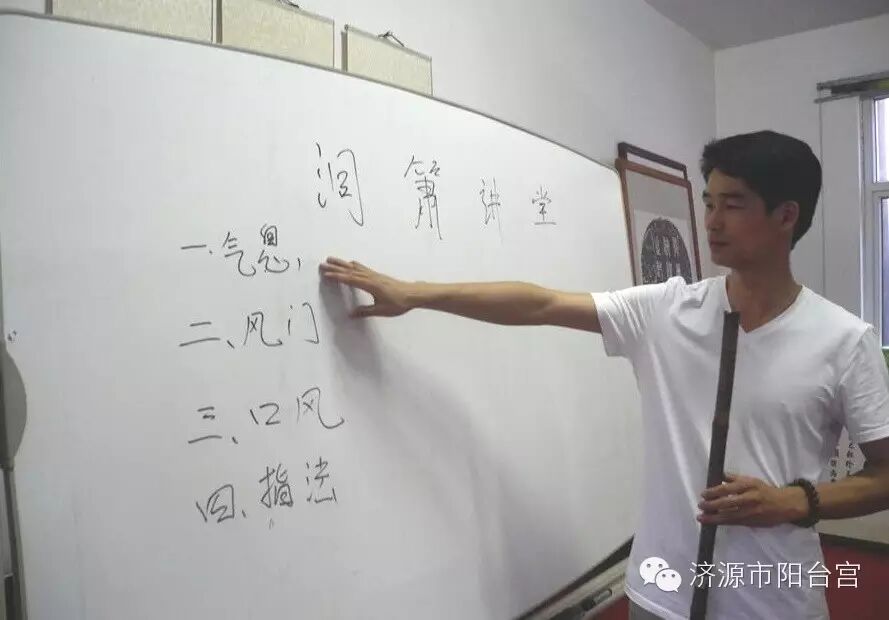 洞箫讲堂
一.气息,
二、风门
三、口风
四、指法
济源市阳台宫